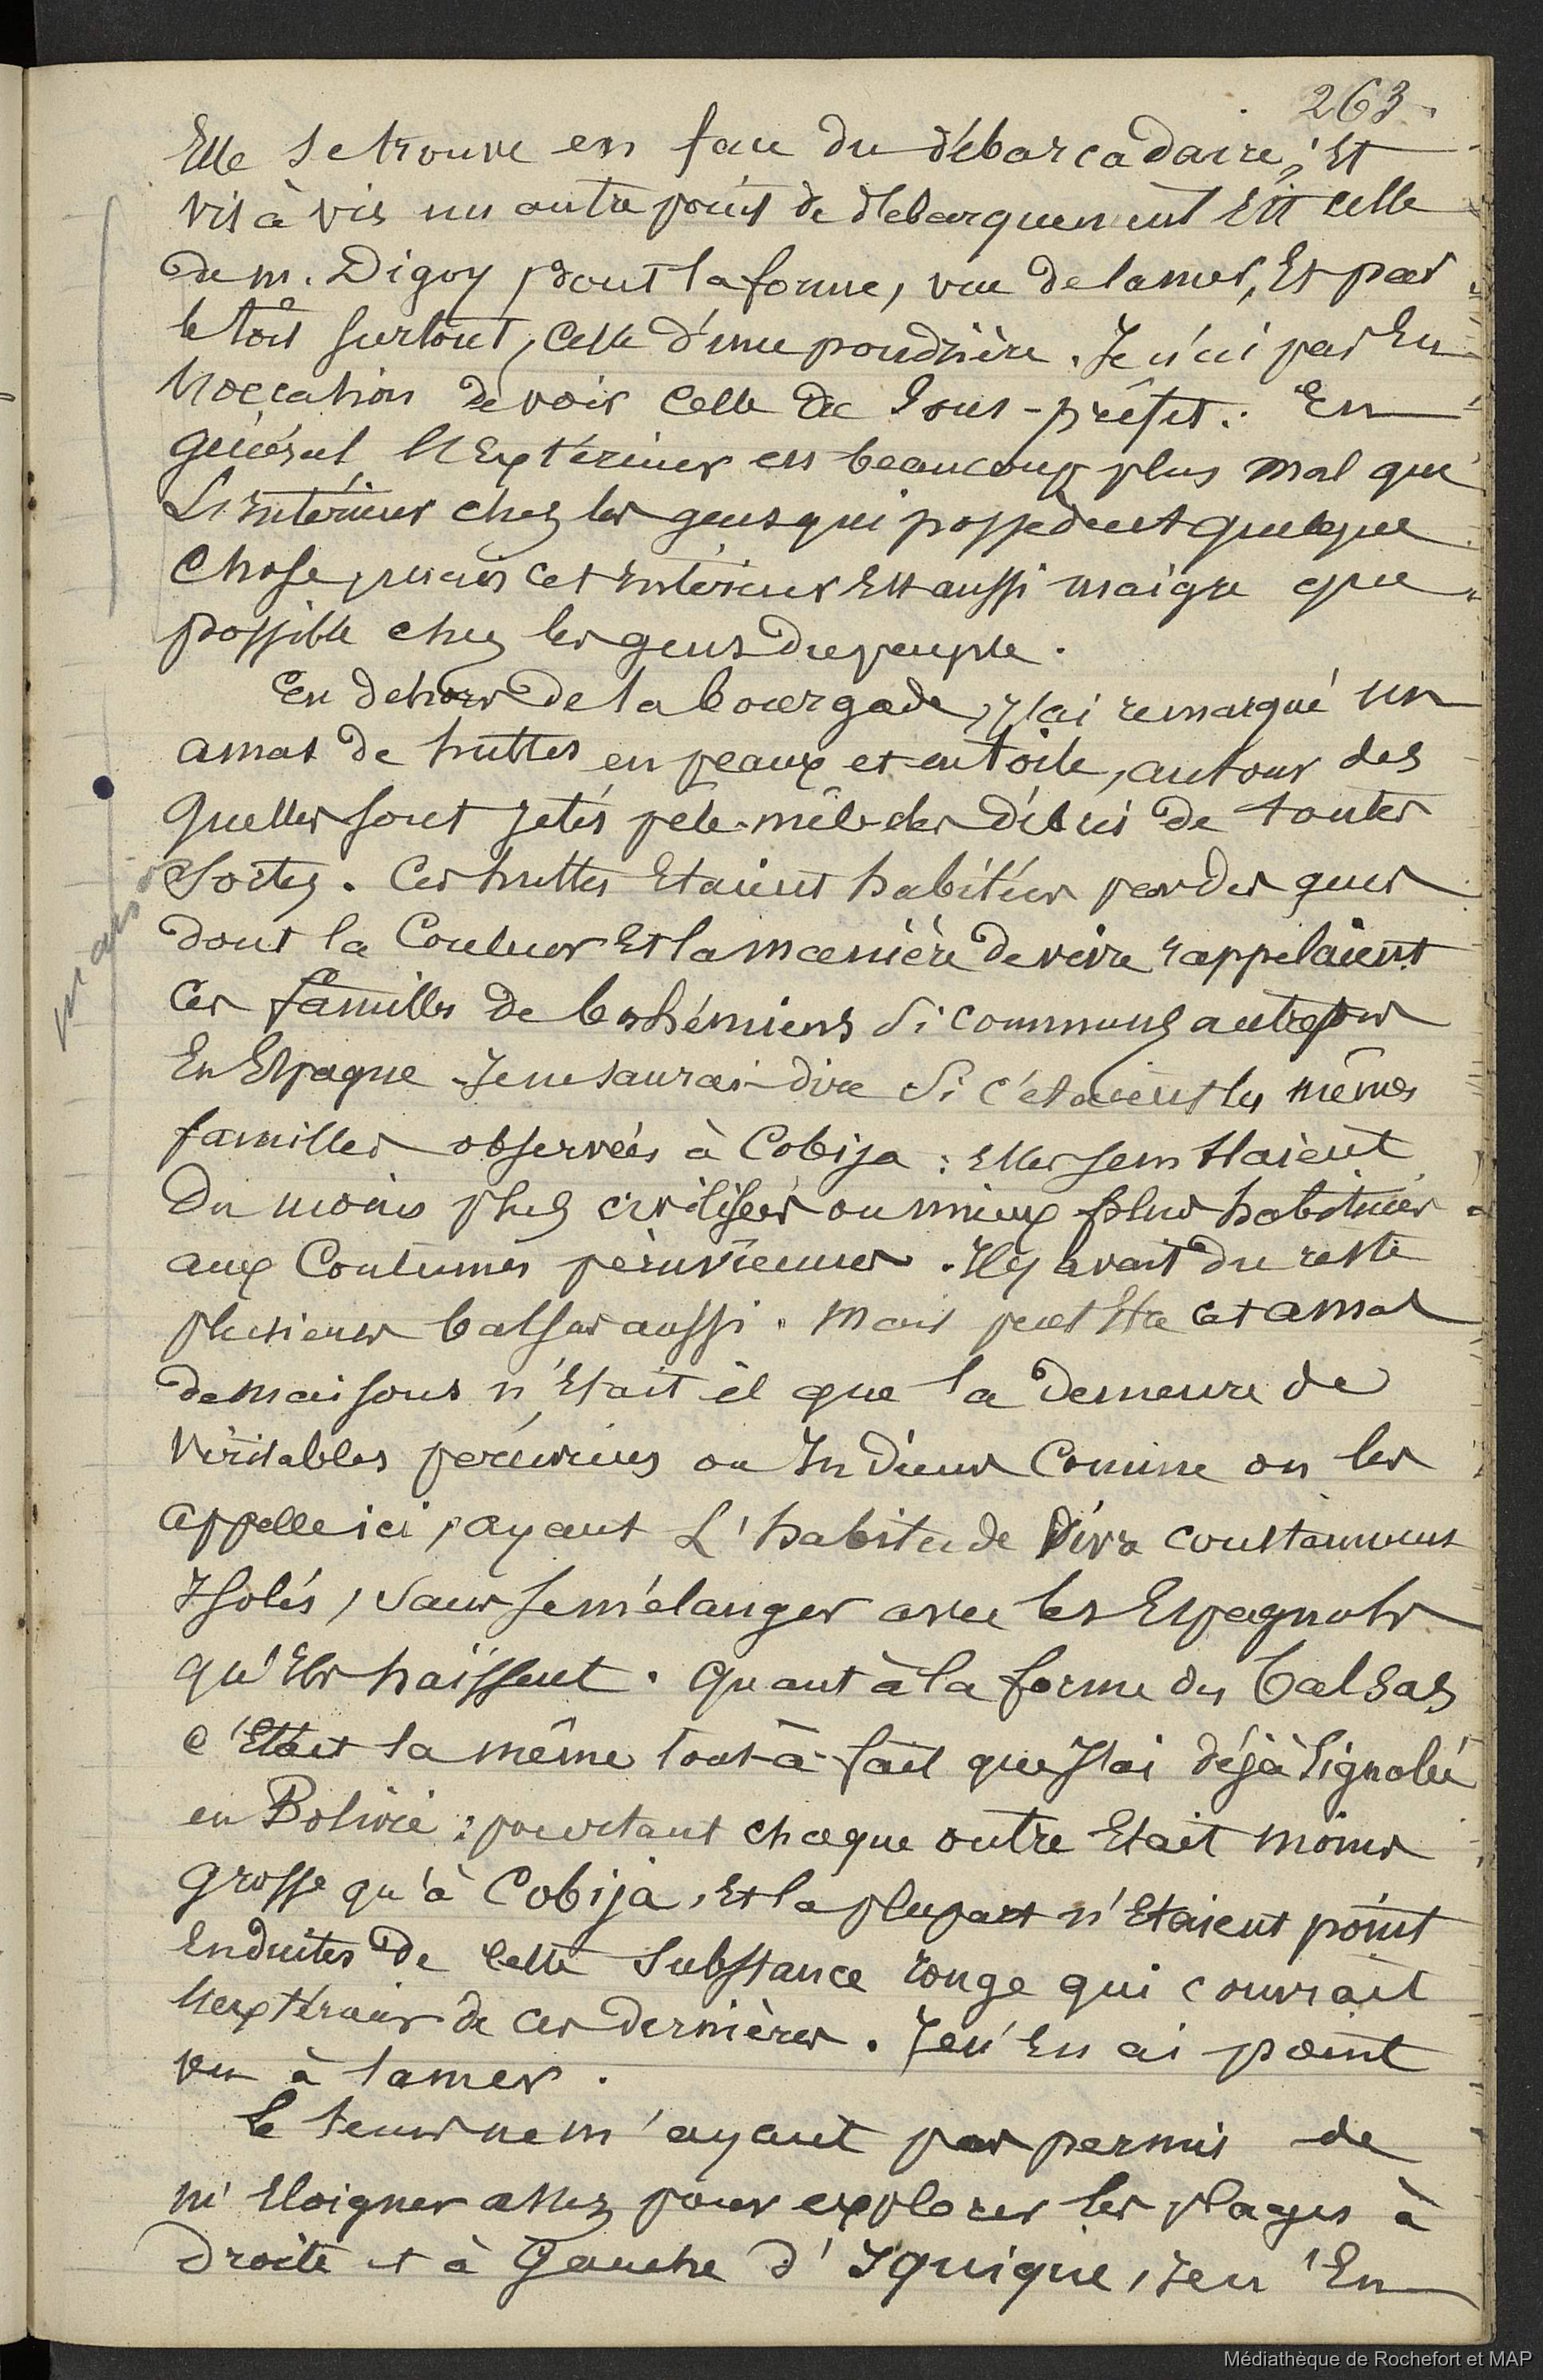 263.
Elle se trouve en face du débarcadaire, Et
vis à vis un autre point de débarquement Est celle
de m. Digoy, dont la forme, vue de la mer, Est par
le toit surtout, celle d'une poudrière. Je n'ai pas Eu
l'occation de voir celle du Sous-préfet. En
général l'Extérieur est beaucoup plus mal que
L'intérieur chez les gens qui possèdent quelque
chose, mais cet intérieur Est aussi maigre que
possible chez les gens du peuple.
En dehors de la bourgade, j'ai remarqué un
amas de huttes en peaux et en toile, autour des
quelles sont jetés pêle-mêle des débris de toutes
sortes. Ces huttes Etaient habitées par des gens
dont la Couleur Et la manière de vivre rappelaient
ces familles de bohémiens si communs autrefois
En Espagne. Je ne saurai dire si c'étaient les mêmes
familles observées à Cobija : Elles semblaient
du moins plus civilisées ou mieux plus habituées
aux Coutumes péruviennes. Il y avait du reste
plusieurs balsas aussi. Mais peut Etre cet amas
de maisons n'Etait il que la demeure de
véritables péruviens ou Indiens Comme on les
appelle ici, ayant L'habitude vivre constamment
Isolés, sans se mélanger avec les Espagnols
qu'Ils haïssent. Quant à la forme des balsas
c'Etait la même tout-à-fait que j'ai déjà signalée
en Bolivie : pourtant chaque outre Etait moins
grosse qu'à Cobija, Et la plupart n'Etaient point
Enduites de cette substance rouge qui couvrait
l'extérieur de ces dernières. Je n'En ai point
vu à la mer.
le temps ne m'ayant pas permis de
m'Eloigner assez pour explorer les plages à
droite et à Gauche d'Iquique, je n'En
maisons
Médiathèque de Rochefort et MAP